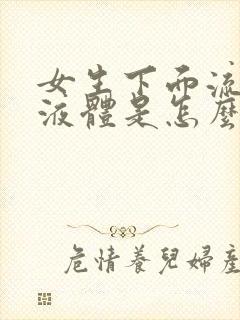 女生下面流
液體是怎麼
危情養兒婦產